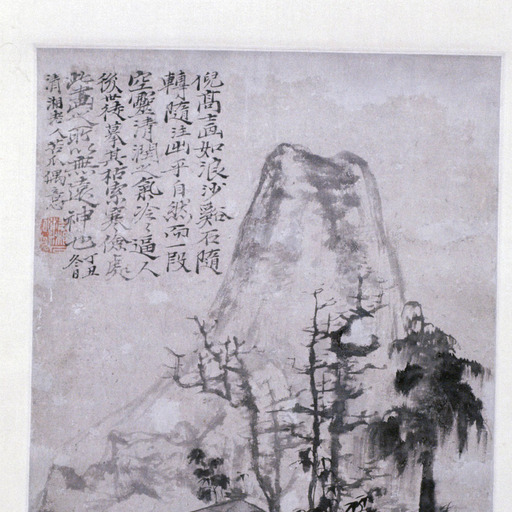 倪高畵如浪沙谿石隨
轉隨注出乎自然而一段
空靈清潤之氣冷冷逼人
後世徒摹其枯索寒儉處
此畵之所以無遠神也 丁丑冬日
清湘老人苦瓜偶意